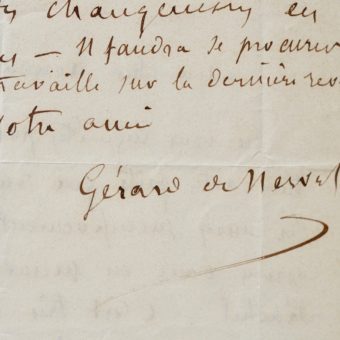 changements en
— Il faudra se procurer
travaille sur la dernière
Votre ami
Gérard de Nerval